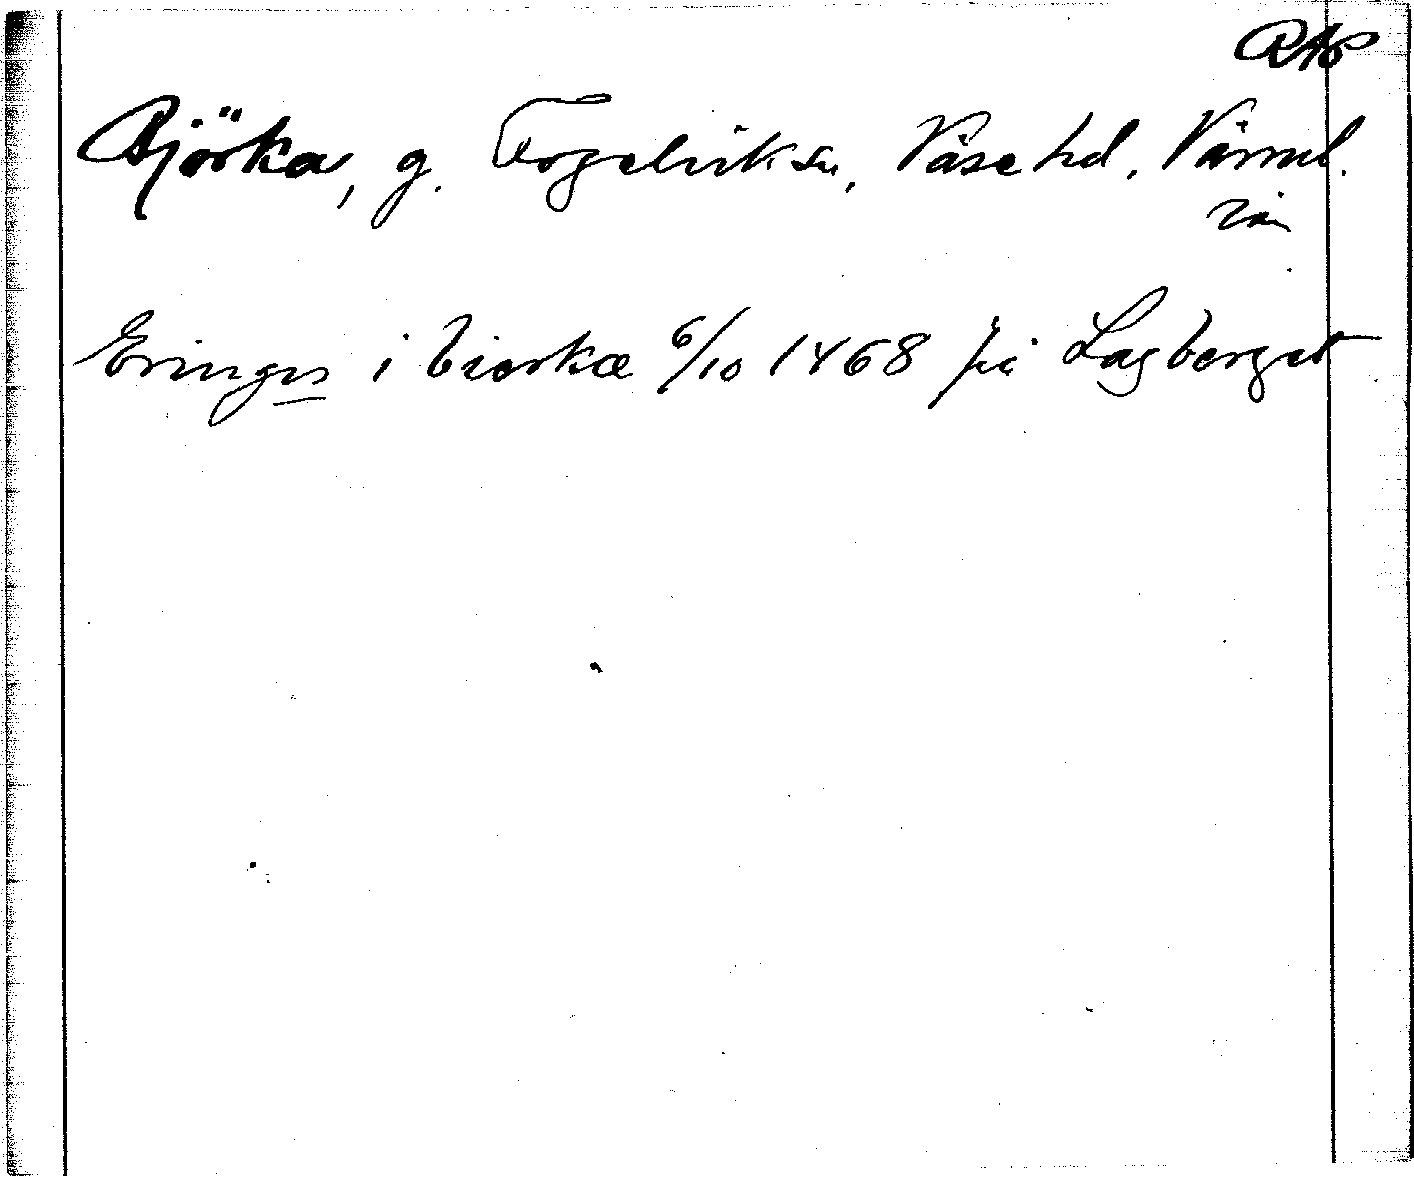 RAp
Björka, g. Fogelviks sn, Väse hd, Värml.
län
Eringer i biorkæ 6/10 1468 på Lagberget